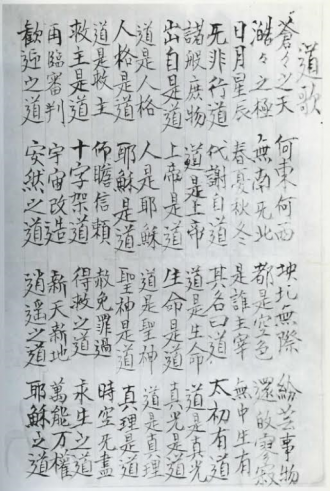 道歌
蒼々之天 何東何西 坱圠無際 紛芸事物
澔々之極 無南无北 都是空色 還敀寥寂
日月星辰 春夏秋冬 是誰主宰 無中生有
无非行道 代謝自道 其名曰道 太初有道
諸般庶物 道是上帝 道是生命 道是真光
出自是道 上帝是道 生命是道 真光是道
道是人格 人是耶穌 道是聖神 道是真理
人格是道 耶穌是道 聖神是道 真理是道
道是救主 仰瞻信賴 赦免罪過 時空无盡
救主是道 十字架道 得救之道 求生之道
再臨審判 宇宙改造 新天新地 萬能万權
歡迎之道 安然之道 逍遙之道 耶穌之道